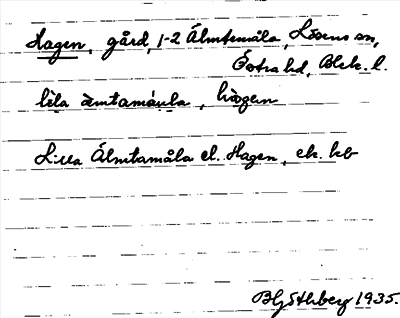 Hagen, gård, 1-2 Älmtamåla, Lösens sn,
Östra hd, Blek. l.
lìla àmtamåula, hàgen
Lilla Älmtamåla el. Hagen, ek. kb
1935.